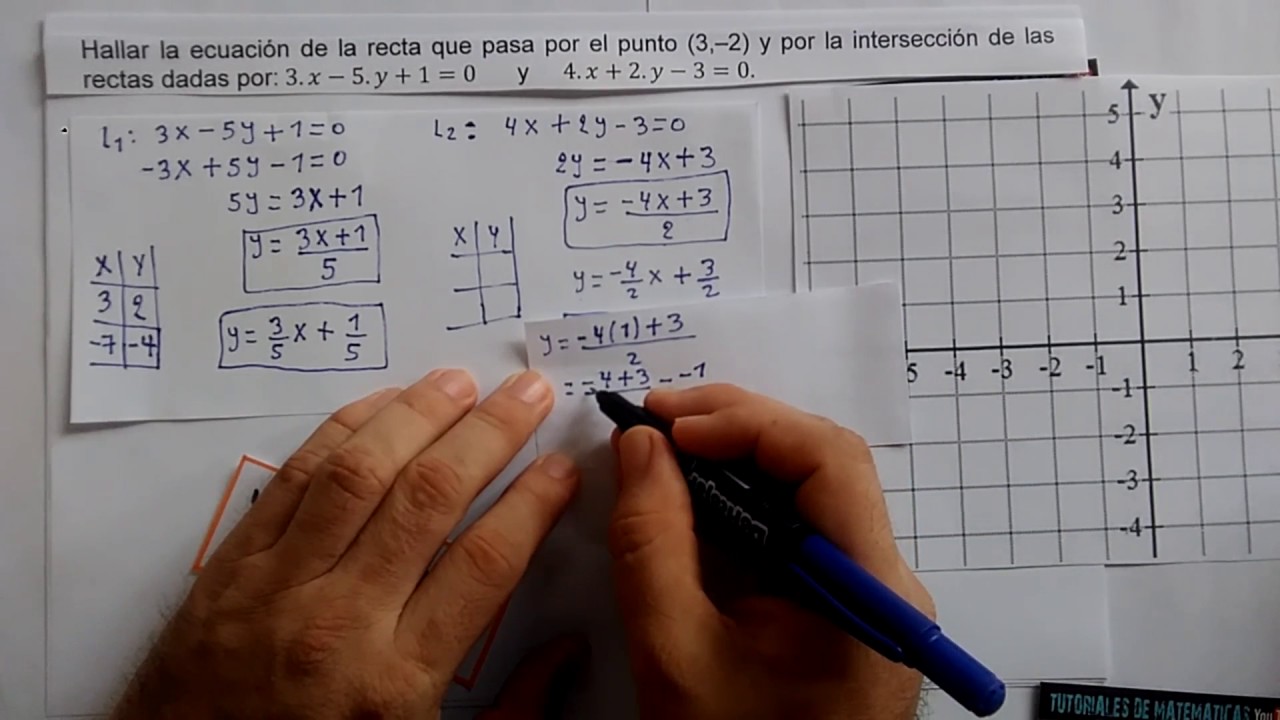 Hallar la ecuación de la recta que pasa por el punto (3,–2) y por la intersección de las
rectas dadas por: 3.x − 5.y + 1 = 0 y 4.x + 2.y − 3 = 0.
L1: 3x − 5y + 1 = 0
−3x + 5y − 1 = 0
5y = 3x + 1
y = (3x + 1)/5
y = 3/5 x + 1/5
x | y
3 | 2
−7 | −4
L2: 4x + 2y − 3 = 0
2y = −4x + 3
y = (−4x + 3)/2
y = −4/2 x + 3/2
x | y
y = (−4(1) + 3)/2
= −4 + 3 − −1
y
5
4
3
2
1
5 -4 -3 -2 -1 1 2
-1
-2
-3
-4
TUTORIALES DE MATEMATICAS You